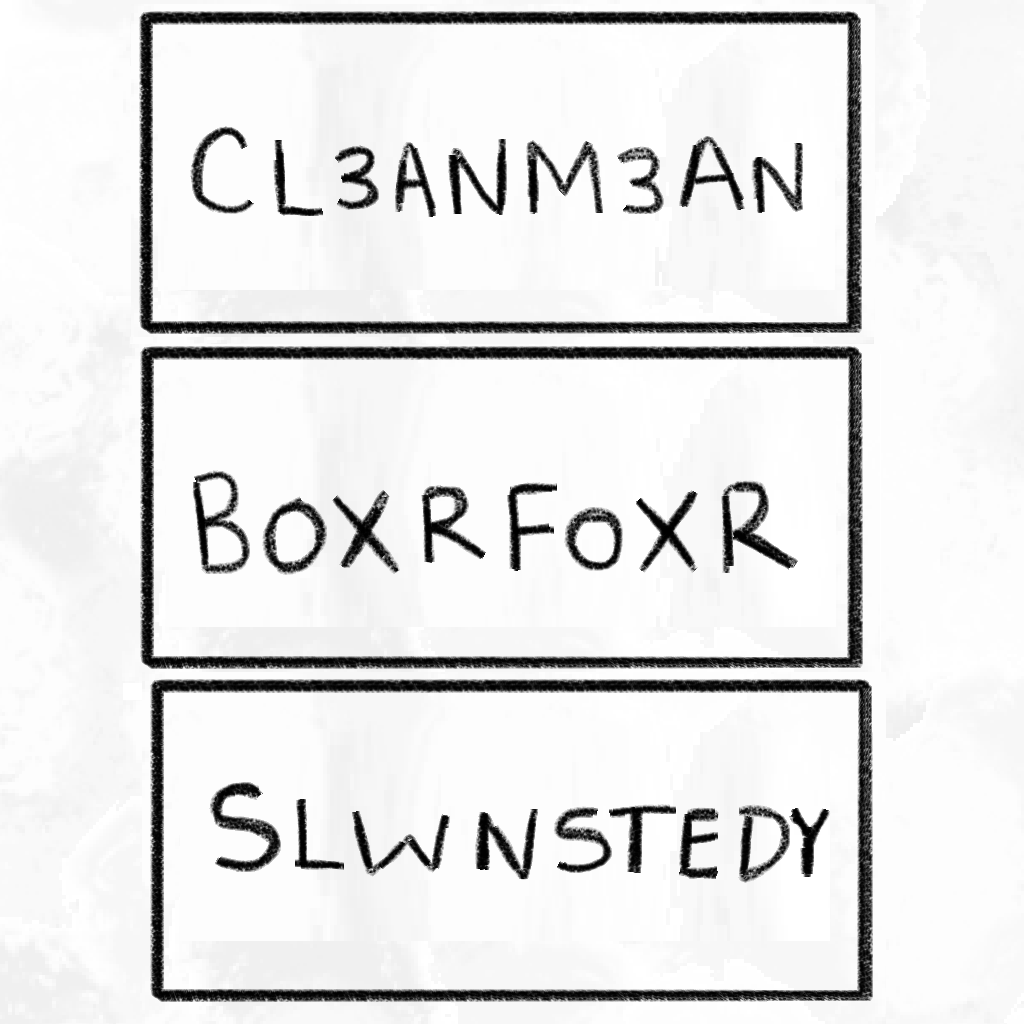 CL3ANM3AN
BOXRFOXR
SLWNSTEDY